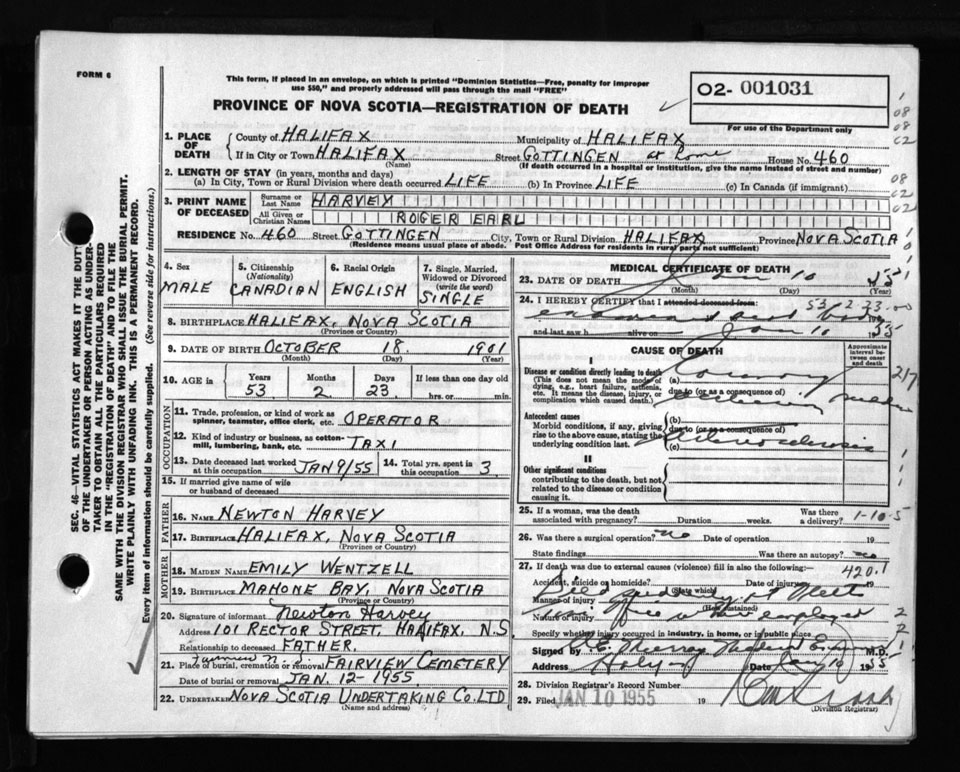 FORM 6
This form, if placed in an envelope, on which is printed "Dominion Statistics—Free, penalty for improper
use $50," and properly addressed will pass through the mail "FREE"
PROVINCE OF NOVA SCOTIA—REGISTRATION OF DEATH
02- 001031
For use of the Department only
1. PLACE OF DEATH
County of HALIFAX Municipality of HALIFAX
If in City or Town HALIFAX Street GOTTINGEN at Home House No. 460
(Name) (If death occurred in a hospital or institution, give the name instead of street and number)
2. LENGTH OF STAY (in years, months and days)
(a) In City, Town or Rural Division where death occurred LIFE (b) In Province LIFE (c) In Canada (if immigrant)
3. PRINT NAME OF DECEASED
Surname or Last Name HARVEY
All Given or Christian Names ROGER EARL
RESIDENCE No. 460 Street GOTTINGEN City, Town or Rural Division HALIFAX Province NOVA SCOTIA
(Residence means usual place of abode. Post Office Address for residents in rural parts not sufficient)
4. Sex
MALE
5. Citizenship (Nationality)
CANADIAN
6. Racial Origin
ENGLISH
7. Single, Married, Widowed or Divorced (write the word)
SINGLE
8. BIRTHPLACE HALIFAX, NOVA SCOTIA
(Province or Country)
9. DATE OF BIRTH OCTOBER 18. 1901
(Month) (Day) (Year)
10. AGE in
Years Months Days If less than one day old
53 2 23 hrs. or min.
OCCUPATION
11. Trade, profession, or kind of work as
spinner, teamster, office clerk, etc. OPERATOR
12. Kind of industry or business, as cotton-
mill, lumbering, bank, etc. TAXI
13. Date deceased last worked at this occupation JAN 9/55 14. Total yrs. spent in this occupation 3
15. If married give name of wife
or husband of deceased
FATHER
16. NAME NEWTON HARVEY
17. BIRTHPLACE HALIFAX, NOVA SCOTIA
(Province or Country)
MOTHER
18. MAIDEN NAME EMILY WENTZELL
19. BIRTHPLACE MAHONE BAY, NOVA SCOTIA
(Province or Country)
20. Signature of informant Newton Harvey
Address 101 RECTOR STREET, HALIFAX, N.S.
Relationship to deceased FATHER.
Fairview N.S.
21. Place of burial, cremation or removal FAIRVIEW CEMETERY
Date of burial or removal JAN. 12 - 1955
22. UNDERTAKER NOVA SCOTIA UNDERTAKING CO. LTD
(Name and address)
MEDICAL CERTIFICATE OF DEATH
23. DATE OF DEATH Jan 10 1955
(Month) (Day) (Year)
24. I HEREBY CERTIFY that I attended deceased from:
53 2 23
examined dead body
and last saw h alive on Jan 10 1955
CAUSE OF DEATH
Approximate interval between onset and death
I
Disease or condition directly leading to death
(This does not mean the mode of
dying, e.g., heart failure, asthenia,
etc. It means the disease, injury, or
complication which caused death.)
(a) Coronary
due to (or as a consequence of)
Antecedent causes
Morbid conditions, if any, giving
rise to the above cause, stating the
underlying condition last.
(b)
due to (or as a consequence of)
Arteriosclerosis
(c)
II
Other significant conditions
contributing to the death, but not
related to the disease or condition
causing it.
25. If a woman, was the death
associated with pregnancy? Duration weeks. Was there a delivery? 1-10-5
26. Was there a surgical operation? no Date of operation 19
State findings Was there an autopsy? no
27. If death was due to external causes (violence) fill in also the following: 420.1
Accident, suicide or homicide? Date of injury 19
(State which)
Manner of injury Died suddenly at
(How sustained)
Nature of injury office where employed
Specify whether injury occurred in industry, in home, or in public place
Signed by Murray M.D.
Address Halifax Date Jan 10 1955
28. Division Registrar's Record Number
29. Filed JAN 10 1955 19
(Division Registrar)
SEC. 46—VITAL STATISTICS ACT MAKES IT THE DUTY
OF THE UNDERTAKER OR PERSON ACTING AS UNDER-
TAKER TO OBTAIN ALL THE PARTICULARS REQUIRED
IN THE "REGISTRATION OF DEATH" AND TO FILE THE
SAME WITH THE DIVISION REGISTRAR WHO SHALL ISSUE THE BURIAL PERMIT.
WRITE PLAINLY WITH UNFADING INK. THIS IS A PERMANENT RECORD.
Every item of information should be carefully supplied. (See reverse side for instructions.)